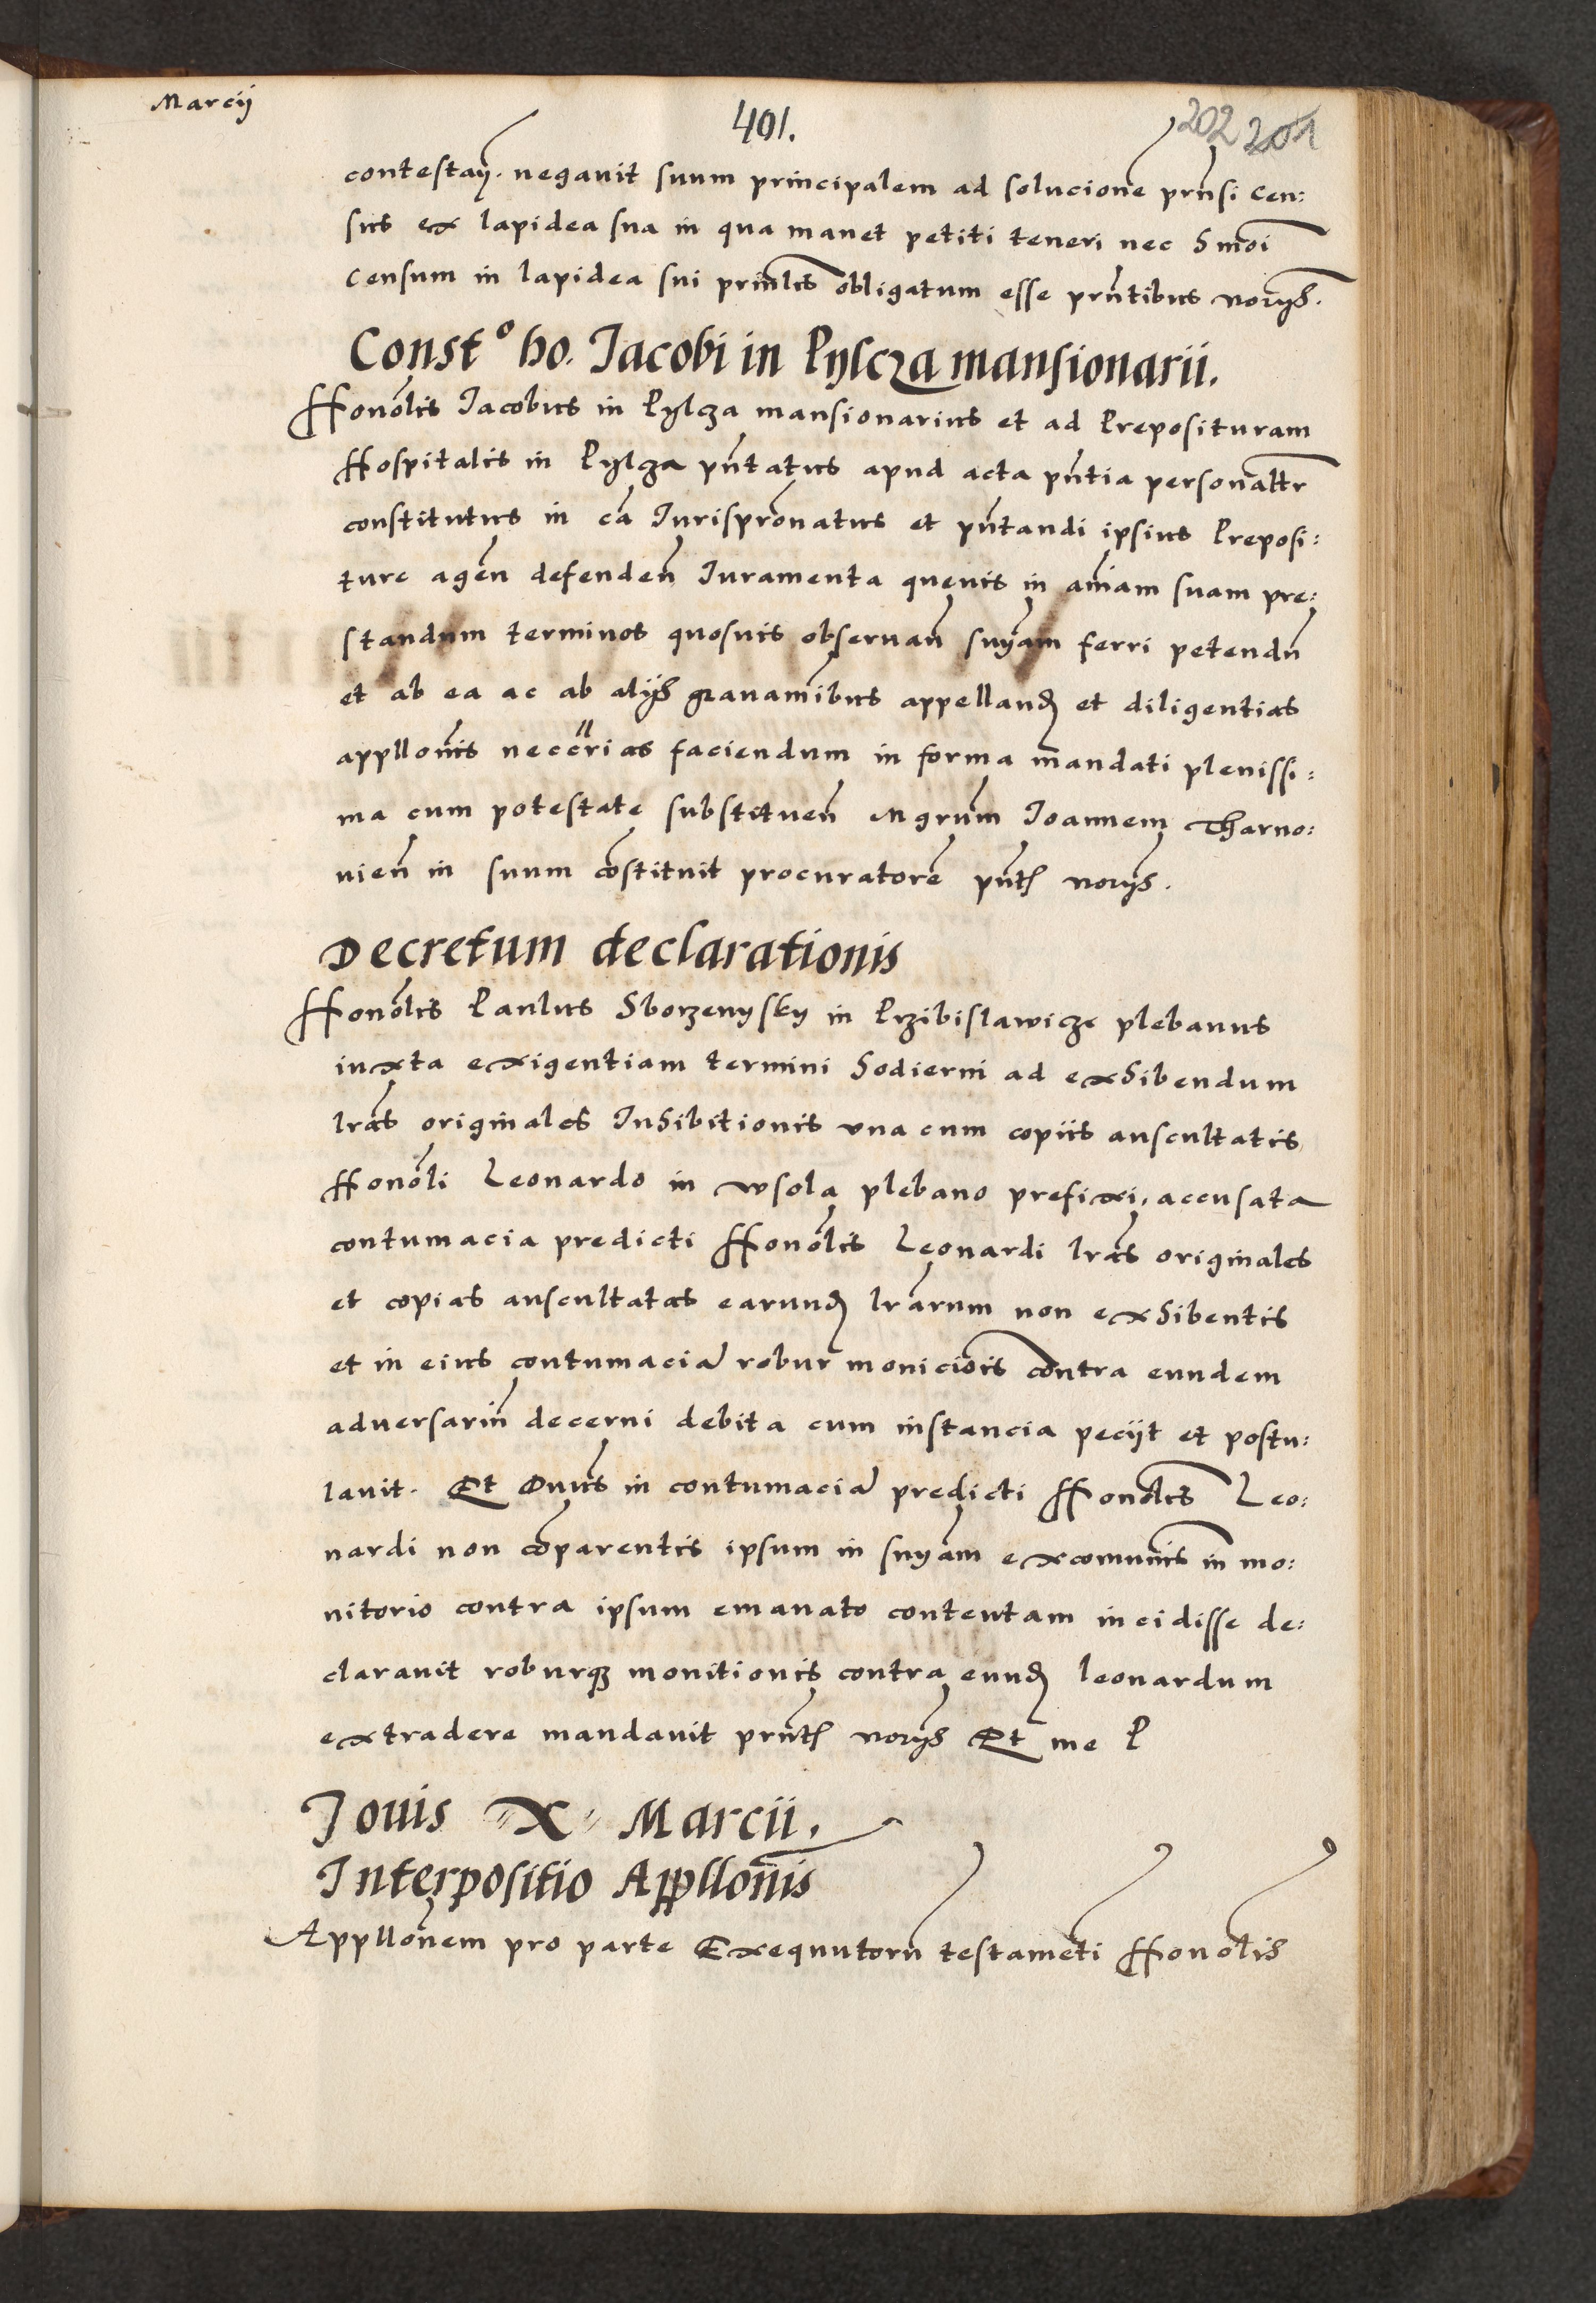 Marcij
401.
202 201
contestaṇ. negauit suum principalem ad solucionē prn̄si cen:
sus ex lapidea sua in qua manet petiti teneri nec hmoī
censum in lapidea sui prin̄lis obligatum esse prn̄tibus norijs.
Constº ho. Jacobi in Pylcza mansionarii.
Honōlis Jacobus in Pylcza mansionarius et ad Preposituram
Hospitalis in Pylcza pn̄tatus apud acta pn̄tia personalr̄
constitutus in cā Jurisprōnatus et pn̄tandi ipsius Preposi:
ture agen̄ defenden̄ Juramenta queuis in aīam suam pre:
standum terminos quosuis obseruan̄ snīam ferri petendū
et ab ea ac ab alijs grauamībus appellanđ et diligentias
appllonīs neccrīas faciendum in forma mandati plenissi:
ma cum potestate substituen̄ Mgrūm Joannem Tharno:
uien̄ in suum cōstituit procuratorē pn̄t norijs.
Decretum declarationis
Honōlis Paulus Sborzenysky in Przibislawicze plebanus
iuxta exigentiam termini hodierni ad exhibendum
lrās originales Inhibitionis vna cum copiis auscultatis
Honōli Leonardo in wsola plebano prefixi, accusata
contumacia predicti Honōlis Leonardi lrās originales
et copias auscultatas earunđ lrārum non exhibentis
et in eius contumaciā robur moniciōis contra eundem
aduersariū decerni debita cum instancia peciit et postu:
lauit. Et Dnūs in contumaciā predicti Honōlis Leo:
nardi non cōparentis ipsum in snīam excomunīs in mo:
nitorio contra ipsum emanato contentam incidisse de:
clarauit roburqꝫ monitionis contra eunđ leonardum
extradere mandauit prn̄t norijs Et me P
Jouis X Marcii.
Interpositio Appllonīs
Appllonēm pro parte Exequutorū testamēti Honōlis